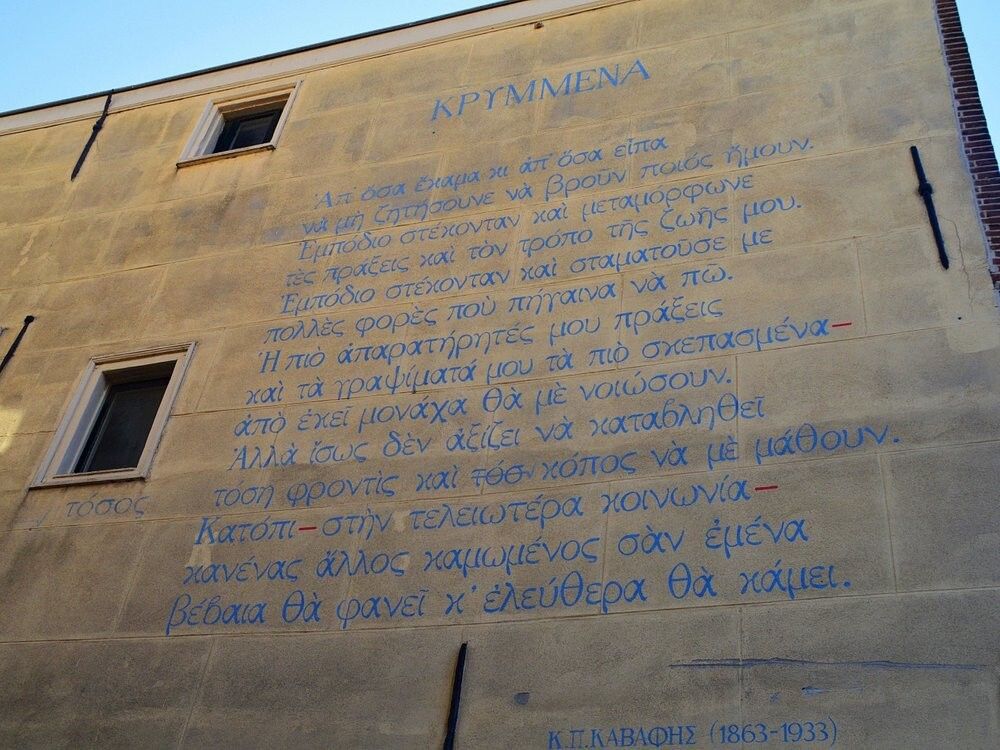 ΚΡΥΜΜΕΝΑ
Ἀπ' ὅσα ἔκαμα κι ἀπ' ὅσα εἶπα
νὰ μὴ ζητήσουνε νὰ βροῦν ποιός ἤμουν.
Ἐμπόδιο στέκονταν καὶ μεταμόρφωνε
τὲς πράξεις καὶ τὸν τρόπο τῆς ζωῆς μου.
Ἐμπόδιο στέκονταν καὶ σταματοῦσε με
πολλὲς φορὲς ποὺ πήγαινα νὰ πῶ.
Ἡ πιὸ ἀπαρατήρητές μου πράξεις
καὶ τὰ γραψίματά μου τὰ πιὸ σκεπασμένα—
ἀπὸ ἐκεῖ μονάχα θὰ μὲ νοιώσουν.
Ἀλλὰ ἴσως δὲν ἀξίζει νὰ καταβληθεῖ
τόση φροντὶς καὶ τόσ κόπος νὰ μὲ μάθουν.
√ τόσος
Κατόπι—στὴν τελειωτέρα κοινωνία—
κανένας ἄλλος καμωμένος σὰν ἐμένα
βέβαια θὰ φανεῖ κ' ἐλεύθερα θὰ κάμει.
Κ.Π.ΚΑΒΑΦΗΣ (1863-1933)